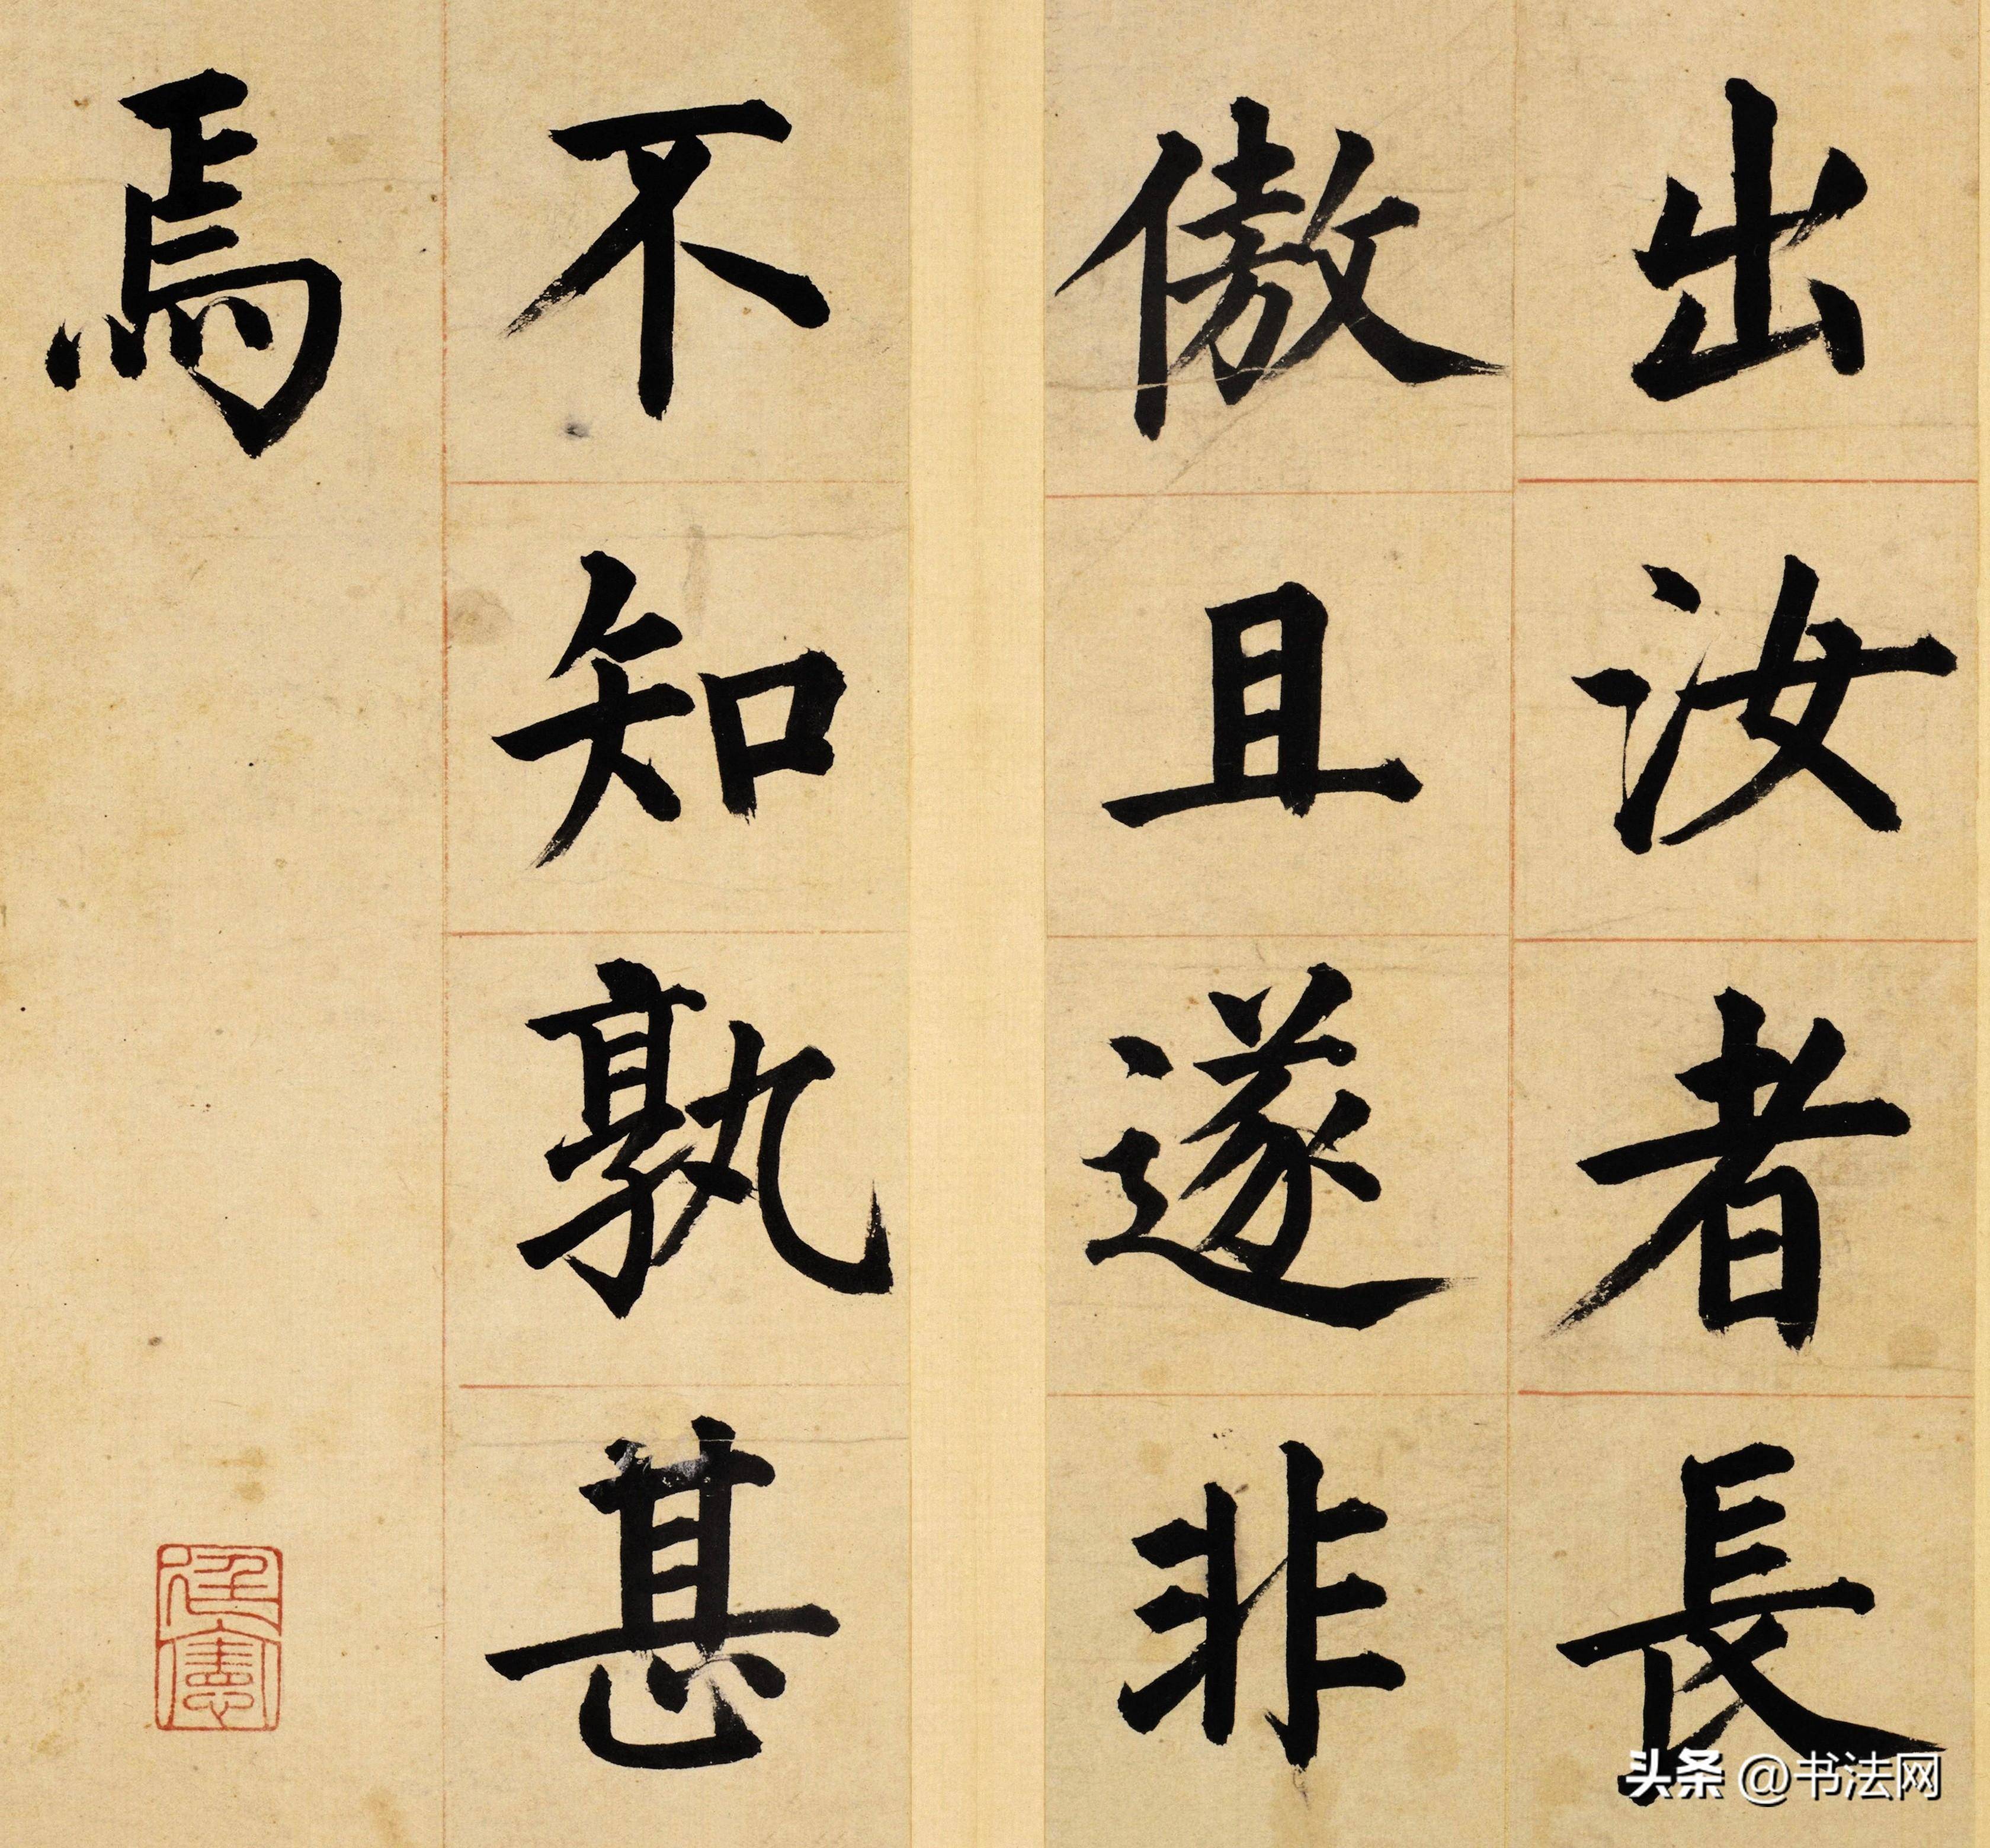 出汝者長
傲且遂非
不知孰甚
焉
头条 @书法网